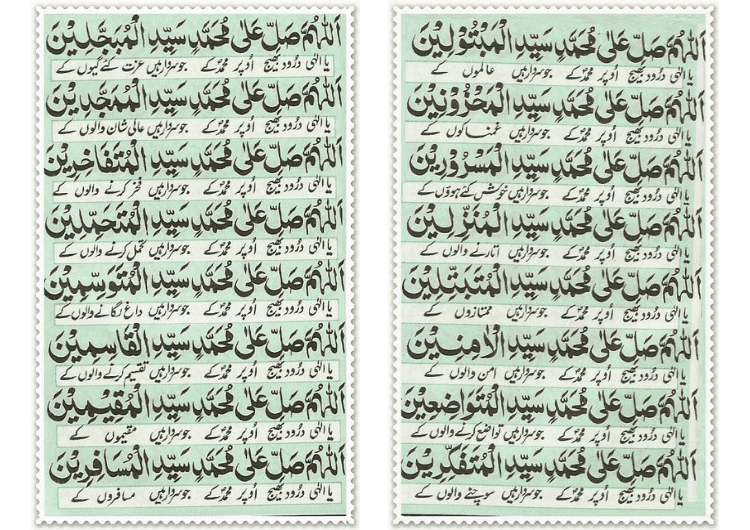 اَللّٰهُمَّ صَلِّ عَلٰى مُحَمَّدٍ سَيِّدِ الْمَبْتُوْلِيْنَ
یا الٰہی درُود بھیج اُوپر محمدؐ کے جو سردار ہیں عالموں کے
اَللّٰهُمَّ صَلِّ عَلٰى مُحَمَّدٍ سَيِّدِ الْمَحْزُوْنِيْنَ
یا الٰہی درُود بھیج اُوپر محمدؐ کے جو سردار ہیں غمناکوں کے
اَللّٰهُمَّ صَلِّ عَلٰى مُحَمَّدٍ سَيِّدِ الْمَسْرُوْرِيْنَ
یا الٰہی درُود بھیج اُوپر محمدؐ کے جو سردار ہیں خوش کئے ہوؤں کے
اَللّٰهُمَّ صَلِّ عَلٰى مُحَمَّدٍ سَيِّدِ الْمُنْزِلِيْنَ
یا الٰہی درُود بھیج اُوپر محمدؐ کے جو سردار ہیں اتارنے والوں کے
اَللّٰهُمَّ صَلِّ عَلٰى مُحَمَّدٍ سَيِّدِ الْمُتَبَتِّلِيْنَ
یا الٰہی درُود بھیج اُوپر محمدؐ کے جو سردار ہیں ممتازوں کے
اَللّٰهُمَّ صَلِّ عَلٰى مُحَمَّدٍ سَيِّدِ الْاٰمِنِيْنَ
یا الٰہی درُود بھیج اُوپر محمدؐ کے جو سردار ہیں امن والوں کے
اَللّٰهُمَّ صَلِّ عَلٰى مُحَمَّدٍ سَيِّدِ الْمُتَوَاضِعِيْنَ
یا الٰہی درُود بھیج اُوپر محمدؐ کے جو سردار ہیں تواضع کرنے والوں کے
اَللّٰهُمَّ صَلِّ عَلٰى مُحَمَّدٍ سَيِّدِ الْمُتَفَكِّرِيْنَ
یا الٰہی درُود بھیج اُوپر محمدؐ کے جو سردار ہیں سوچنے والوں کے
اَللّٰهُمَّ صَلِّ عَلٰى مُحَمَّدٍ سَيِّدِ الْمُبَجَّلِيْنَ
یا الٰہی درُود بھیج اُوپر محمدؐ کے جو سردار ہیں عزت کئے گیوں کے
اَللّٰهُمَّ صَلِّ عَلٰى مُحَمَّدٍ سَيِّدِ الْمُمَجَّدِيْنَ
یا الٰہی درُود بھیج اُوپر محمدؐ کے جو سردار ہیں عالی شان والوں کے
اَللّٰهُمَّ صَلِّ عَلٰى مُحَمَّدٍ سَيِّدِ الْمُتَفَاخِرِيْنَ
یا الٰہی درُود بھیج اُوپر محمدؐ کے جو سردار ہیں فخر کرنے والوں کے
اَللّٰهُمَّ صَلِّ عَلٰى مُحَمَّدٍ سَيِّدِ الْمُتَحَمِّلِيْنَ
یا الٰہی درُود بھیج اُوپر محمدؐ کے جو سردار ہیں تحمل کرنے والوں کے
اَللّٰهُمَّ صَلِّ عَلٰى مُحَمَّدٍ سَيِّدِ الْمُتَوَسِّمِيْنَ
یا الٰہی درُود بھیج اُوپر محمدؐ کے جو سردار ہیں داغ لگانے والوں کے
اَللّٰهُمَّ صَلِّ عَلٰى مُحَمَّدٍ سَيِّدِ الْقَاسِمِيْنَ
یا الٰہی درُود بھیج اُوپر محمدؐ کے جو سردار ہیں تقسیم کرنے والوں کے
اَللّٰهُمَّ صَلِّ عَلٰى مُحَمَّدٍ سَيِّدِ الْمُقِيْمِيْنَ
یا الٰہی درُود بھیج اُوپر محمدؐ کے جو سردار ہیں مقیموں کے
اَللّٰهُمَّ صَلِّ عَلٰى مُحَمَّدٍ سَيِّدِ الْمُسَافِرِيْنَ
یا الٰہی درُود بھیج اُوپر محمدؐ کے جو سردار ہیں مسافروں کے